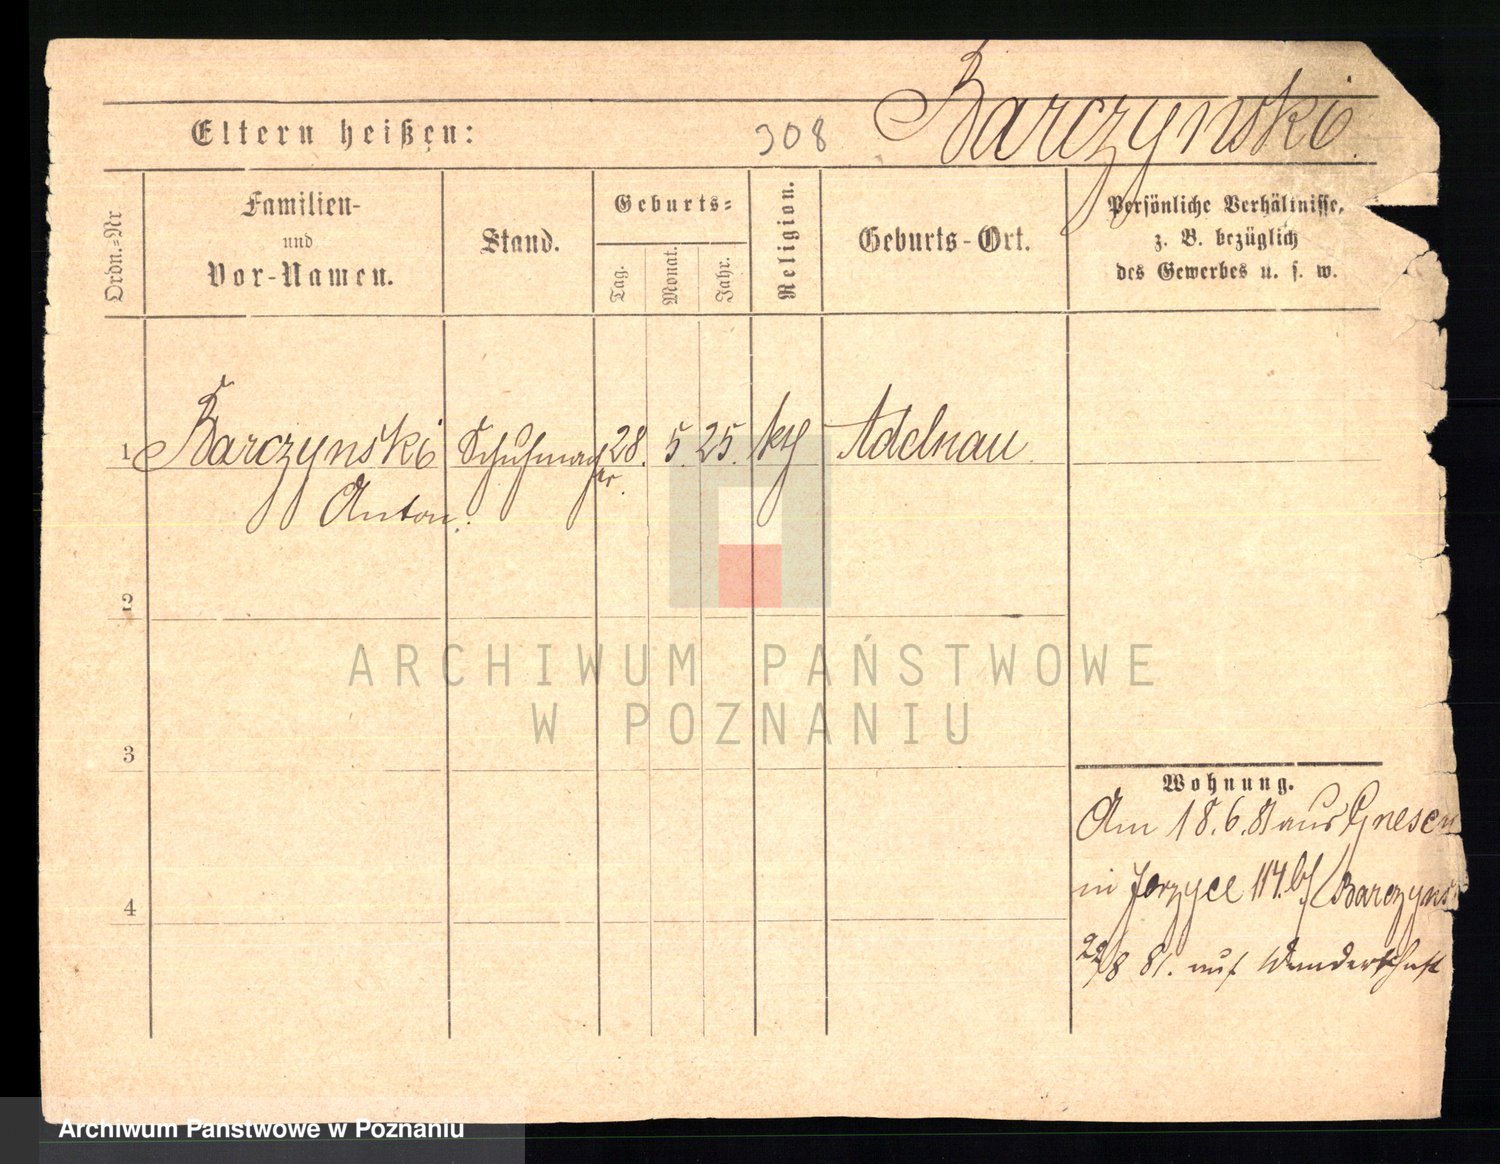 Barczynski.
Eltern heißen:
308
Ordn.=Nr
Familien-
und
Vor-Namen.
Stand.
Geburts=
Tag.
Monat.
Jahr.
Religion.
Geburts-Ort.
Persönliche Verhältnisse,
z. B. bezüglich
des Gewerbes u. s. w.
1 Barczynski Schuhmacher 28. 5. 25. Adelnau
Anton.
2
ARCHIWUM PAŃSTWOWE
W POZNANIU
3
Wohnung.
Am 18.6.81 aus Gnesen
in 114. b/ Barczynsk
4
22/8 81. auf Wanderschaft
Archiwum Państwowe w Poznaniu